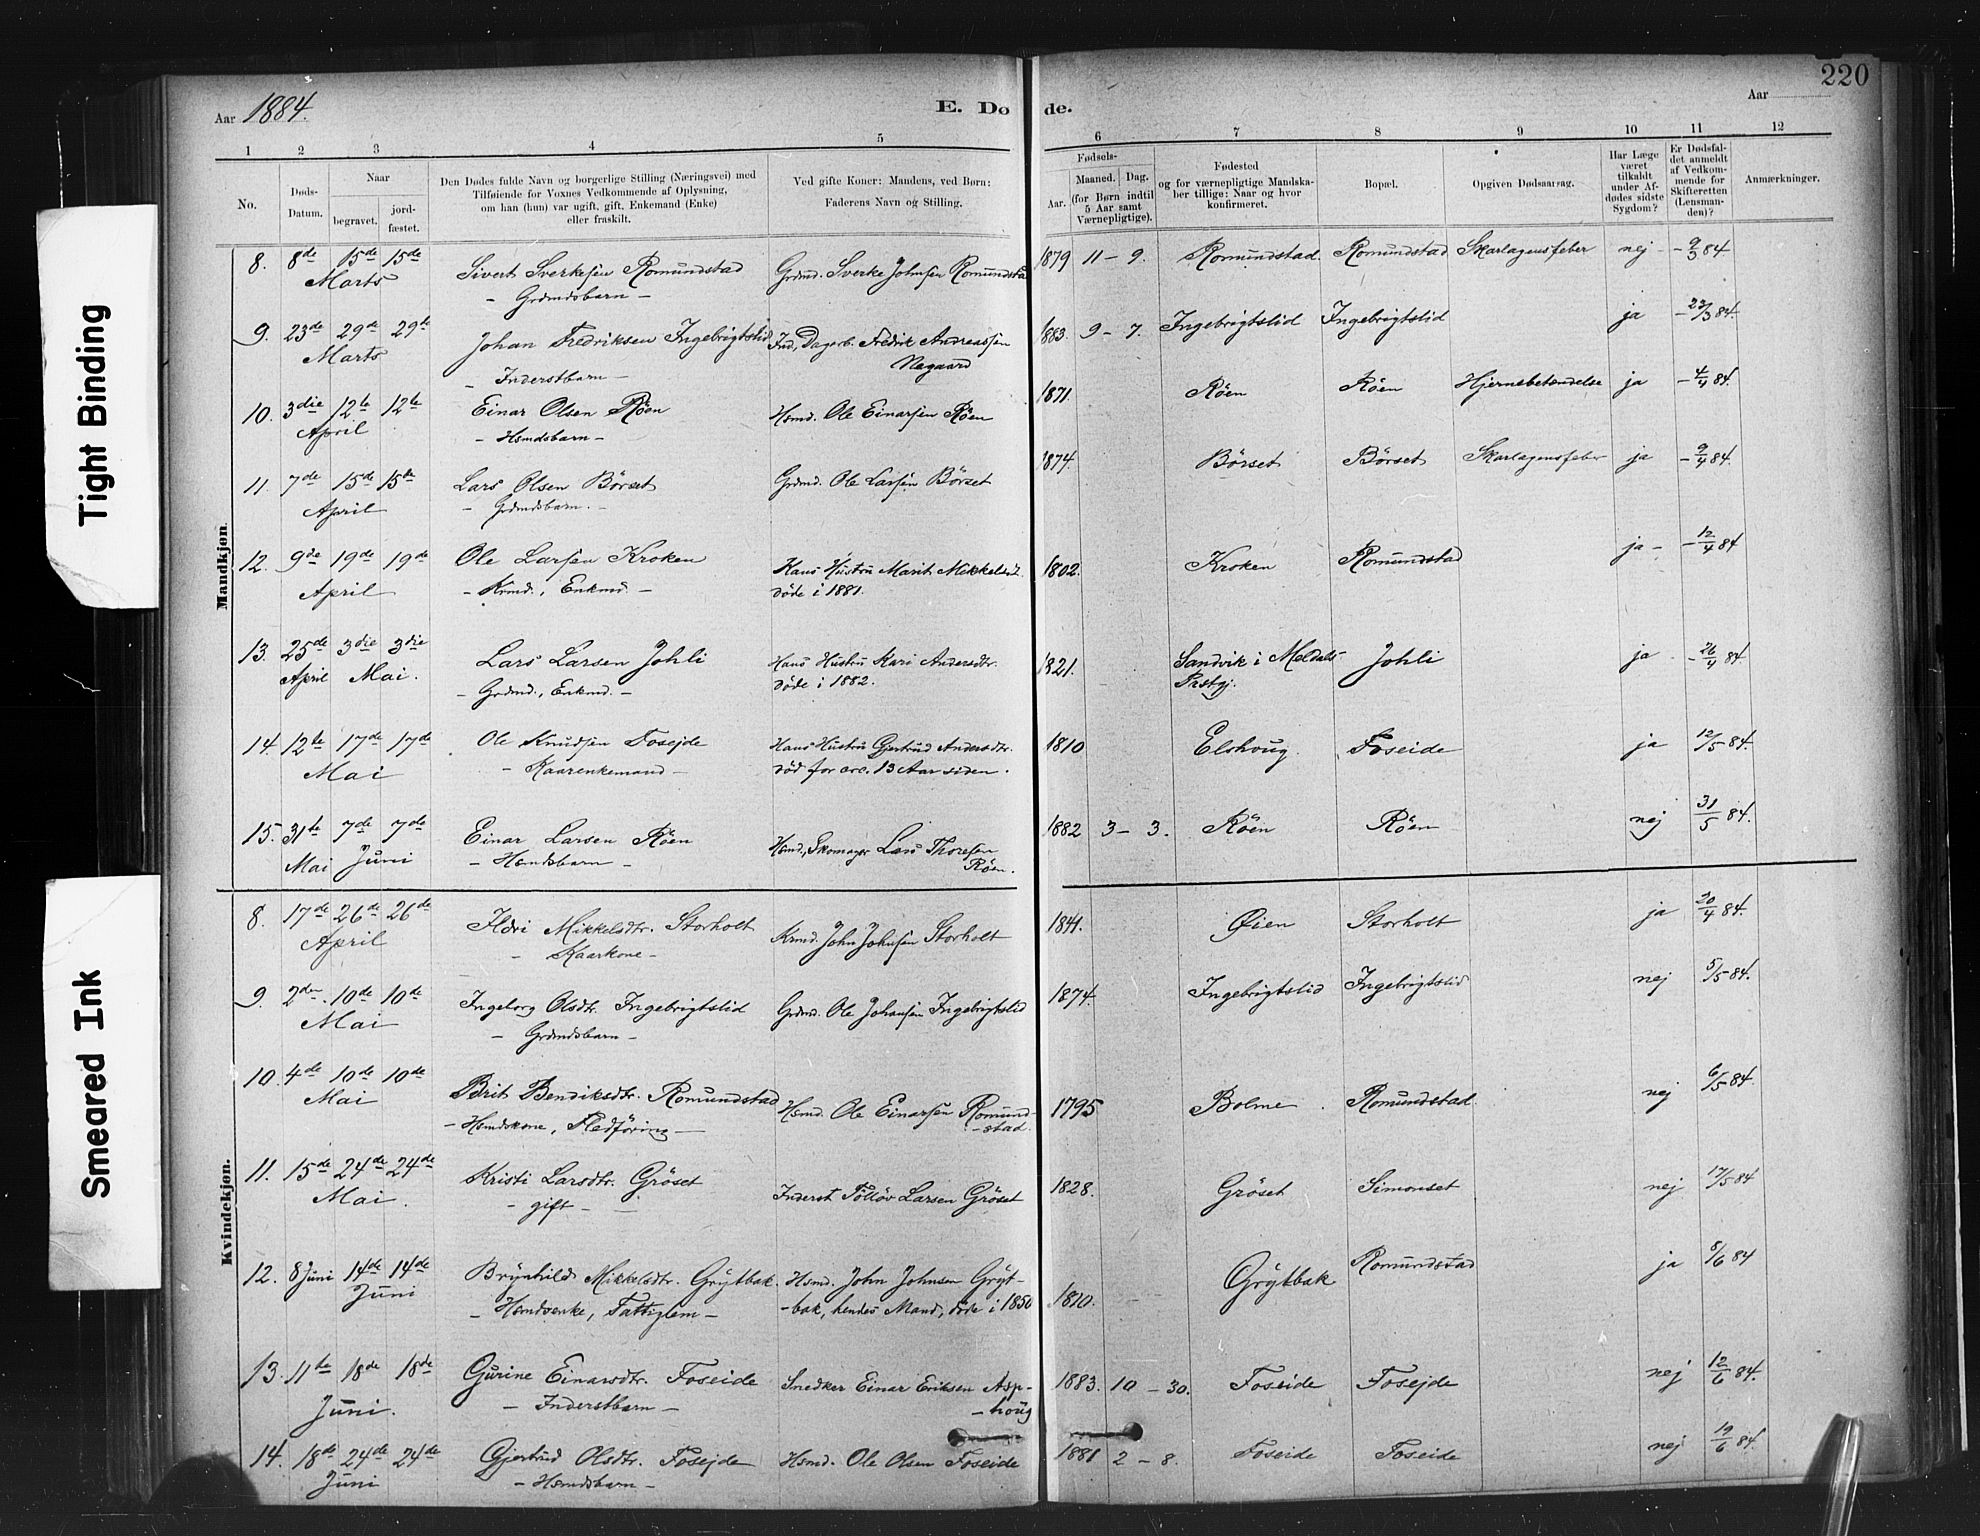 220
Aar 1884.
E. Dø de.
Aar
1 2 3 4 5 6 7 8 9 10 11 12
No.
Døds-Datum.
Naar
begravet.
jord-fæstet.
Den Dødes fulde Navn og borgerlige Stilling (Næringsvei) med
Tilføiende for Voxnes Vedkommende af Oplysning,
om han (hun) var ugift, gift, Enkemand (Enke)
eller fraskilt.
Ved gifte Koner: Mandens, ved Børn:
Faderens Navn og Stilling.
Fødsels-
Aar.
Maaned. Dag.
(for Børn indtil
5 Aar samt
Værnepligtige).
Fødested
og for værnepligtige Mandska-
ber tillige: Naar og hvor
konfirmeret.
Bopæl.
Opgiven Dødsaarsag.
Har Læge
været
tilkaldt
under Af-
dødes sidste
Sygdom?
Er Dødsfal-
det anmeldt
af Vedkom-
mende for
Skifteretten
(Lensman-
den)?
Anmærkninger.
Tight Binding
Smeared Ink
Mandkjøn.
8. 8de 15de 15de Sivert Sverkesen Romundstad Grdmd. Sverke Johnsen Romundstad 1879 11 - 9. Romundstad. Romundstad Skarlagensfeber nej - 9/3 84
Marts - Grdmdsbarn -
9. 23de 29de 29de Johan Fredriksen Ingebrigtslid Ind., Dagarb. Fredrik Andreassen 1883. 9 - 7. Ingebrigtslid Ingebrigtslid ja - 23/3 84.
Marts - Inderstbarn - Nøgaard
10. 3die 12te 12te Einar Olsen Röen Hsmd. Ole Einarsen Röen 1871. Röen Röen Hjernebetændelse ja - 4/4 84.
April - Hsmdsbarn -
11. 7de 15de 15de Lars Olsen Börset Grdmd. Ole Larsen Börset 1874. Börset Börset Skarlagensfeber ja - 9/4 84.
April - Grdmdsbarn. -
12. 9de 19de 19de Ole Larsen Kroken Hans Hustru Marit Mikkelsdt. 1802. Kroken Romundstad ja - - 12/4 84
April - Krmd., Enkmd. - döde i 1881.
13. 25de 3die 3die Lars Larsen Johli Hans Hustru Kari Andersdtr. 1821. Sandvik i Meldals Johli ja - 26/4 84.
April Mai. - Grdmd., Enkmd. - döde i 1882. Prstgj.
14. 12te 17de 17de Ole Knudsen Foseide Hans Hustru Gjertrud Andersdtr. 1810 Elshoug. Foseide ja 12/5 84.
Mai - Kaarenkemand - död for circ. 13 Aar siden.
15. 31te 7de 7de Einar Larsen Röen Hsmd., Skomager Lars Thoresen 1882 3 - 3. Röen Röen nej 31/5 84.
Mai Juni - Hsmdsbarn - Röen.
Kvindekjøn.
8. 17de 26de 26de Ildri Mikkelsdtr. Storholt Krmd. John Johnsen Storholt 1841. Øien Storholt ja 20/4 84.
April - Kaarkone -
9. 2den 10de 10de Ingeborg Olsdtr. Ingebrigtslid Grdmd. Ole Johansen Ingebrigtslid 1874. Ingebrigtslid Ingebrigtslid nej 5/5 84.
Mai - Grdmdsbarn -
10. 4de 10de 10de Brit Bendiksdtr. Romundstad Hsmd. Ole Einarsen Romund- 1795 Bolme. Romundstad. nej 6/5 84.
Mai - Hsmdskone, Fledföring - -stad.
11. 15de 24de 24de Kristi Larsdtr. Gröset Inderst Föllöv Larsen Gröset 1828. Gröset Simonset nej 17/5 84
Mai. - gift -
12. 8 Juni 14de 14de Brynhild Mikkelsdtr. Grytbak. Hsmd. John Johnsen Gryt- 1810. Grytbak Romundstad ja 8/6 84
Juni - Hsmdsenke, Fattiglem - -bak, hendes Mand, döde i 1850
13. 11te 18de 18de Gurine Einarsdtr. Foseide Snedker Einar Eriksen Asp- 1883. 10 - 30. Foseide Foseide nej 12/6 84.
Juni. - Inderstbarn - -houg
14. 18de 24de 24de Gjertrud Olsdtr. Foseide Hsmd. Ole Olsen Foseide 1881 2 - 8. Foseide Foseide nej 19/6 84.
Juni - Hsmdsbarn -